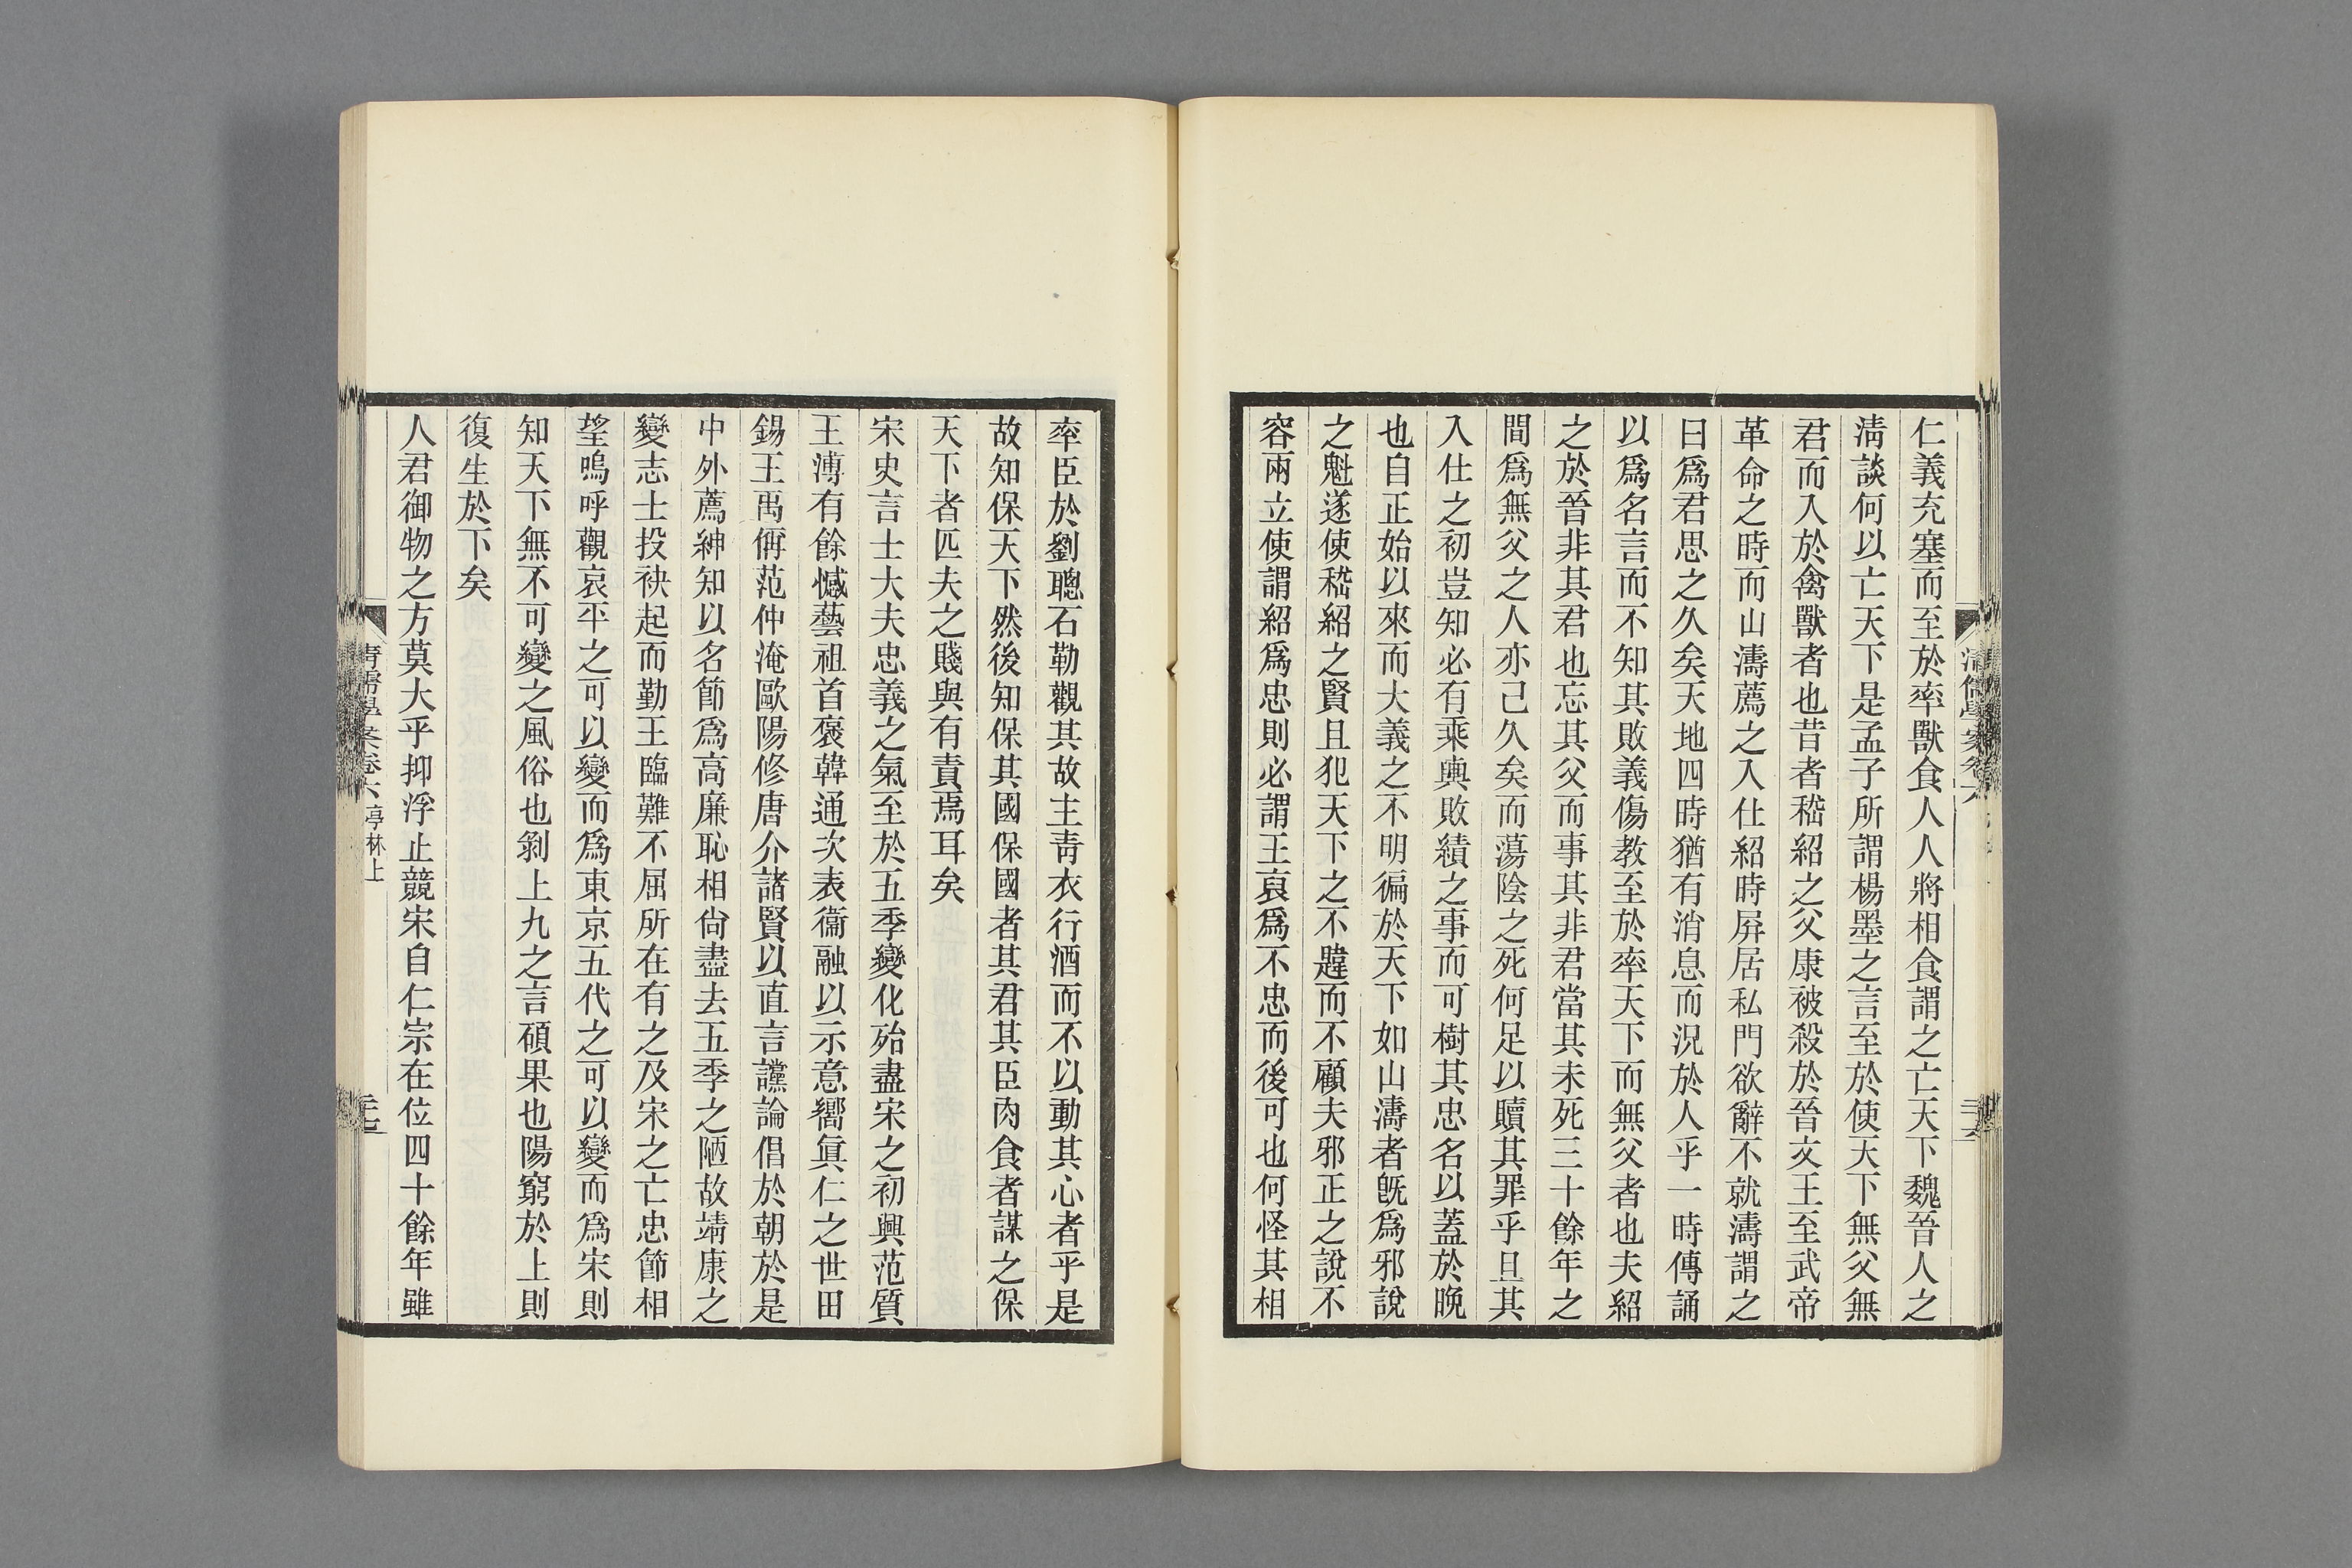 仁義充塞而至於率獸食人人將相食謂之亡天下魏晉人之
淸談何以亡天下是孟子所謂楊墨之言至於使天下無父無
君而入於禽獸者也昔者嵇紹之父康被殺於晉文王至武帝
革命之時而山濤薦之入仕紹時屛居私門欲辭不就濤謂之
曰爲君思之久矣天地四時猶有消息而況於人乎一時傳誦
以爲名言而不知其敗義傷教至於率天下而無父者也夫紹
之於晉非其君也忘其父而事其非君當其未死三十餘年之
間爲無父之人亦已久矣而蕩陰之死何足以贖其罪乎且其
入仕之初豈知必有乘輿敗績之事而可樹其忠名以蓋於晚
也自正始以來而大義之不明徧於天下如山濤者既爲邪說
之魁遂使嵇紹之賢且犯天下之不韙而不顧夫邪正之說不
容兩立使謂紹爲忠則必謂王裒爲不忠而後可也何怪其相
率臣於劉聰石勒觀其故主靑衣行酒而不以動其心者乎是
故知保天下然後知保其國保國者其君其臣肉食者謀之保
天下者匹夫之賤與有責焉耳矣
宋史言士大夫忠義之氣至於五季變化殆盡宋之初興范質
王溥有餘憾藝祖首褒韓通次表衞融以示意嚮眞仁之世田
錫王禹偁范仲淹歐陽修唐介諸賢以直言讜論倡於朝於是
中外薦紳知以名節爲高廉恥相尙盡去五季之陋故靖康之
變志士投袂起而勤王臨難不屈所在有之及宋之亡忠節相
望嗚呼觀哀平之可以變而爲東京五代之可以變而爲宋則
知天下無不可變之風俗也剝上九之言碩果也陽窮於上則
復生於下矣
人君御物之方莫大乎抑浮止競宋自仁宗在位四十餘年雖
淸儒學案卷六 亭林上